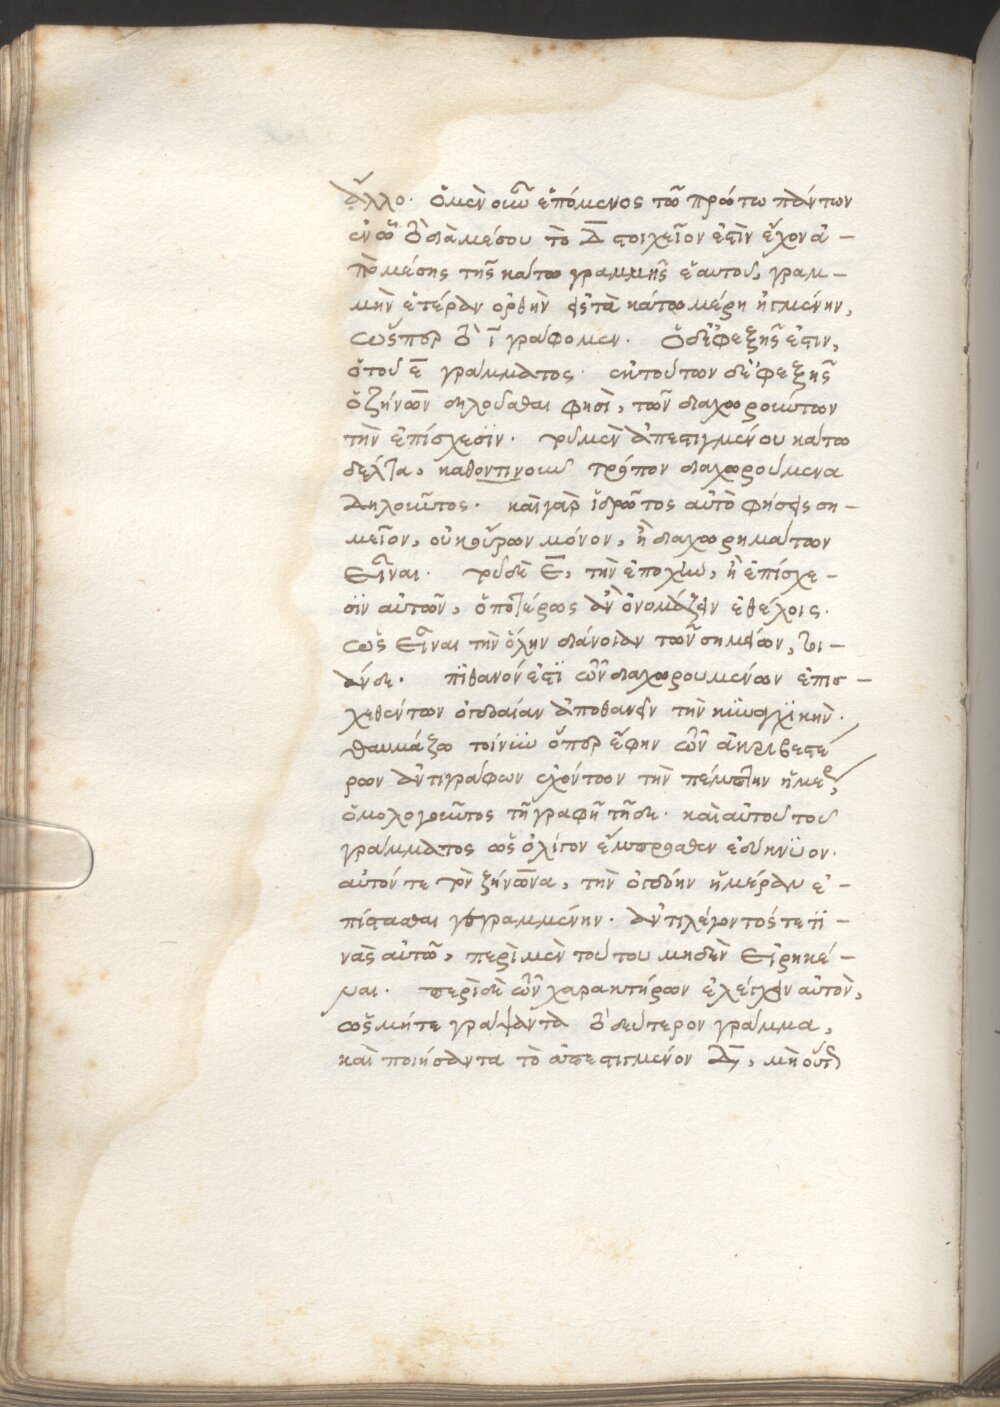 ἄλλο. ὁ μὲν οὖν ἑπόμενος τῶ πρώτω πάντων
ἐν ὧ διὰ μέσου τὸ Δ στοιχεῖον ἐστὶν ἔχον ἀ-
πὸ μέσης τῆς κάτω γραμμῆς ἑαυτοῦ, γραμ-
μὴν ἑτέραν ὀρθὴν εἰς τὰ κάτω μέρη ἠγμένην,
ὥσπερ τὸ ῑ γράφομεν. ὁ δ' ἐφεξῆς ἐστιν,
ὁ τοῦ Ε̄ γράμματος. ἐκ τούτων δ' ἐφεξῆς
ὁ ζήνων δηλοῦσθαι φησὶ, τῶν διαχωρούντων
τὴν ἐπίσχεσϊν. τοῦ μὲν ἀπεστιγμένου κάτω
δέλτα, καθοντινοῦν τρόπον διαχωρούμενα
δηλοῦντος. καὶ γὰρ ἱδρῶτος αὐτὸ φήσει ση-
μεῖον, οὐκ οὔρων μόνον, ἢ διαχωρημάτων
εἶναι. τοῦ δὲ Ε̄, τὴν ἐποχὴν, ἢ ἐπίσχε-
σϊν αὐτῶν, ὁποτέρως ἂν ὀνομάζειν ἐθέλοις.
ὡς εἶναι τὴν ὅλην διάνοιαν τῶν σημείων, τοι-
άνδε. πϊθανόν ἐστϊ τῶν διαχωρουμένων ἐπισ-
χεθέντων ὀγδοαίαν ἀποθανεῖν τὴν
θαυμάζω τοίνυν ὅπερ ἔφην τῶν ἀκριβεστέ
ρων ἀντιγράφων ἐχόντων τὴν πέμπτην ἡμέρ,
ὁμολογοῦντος τῆ γραφῆ τῆδε. καὶ αὐτοῦ τοῦ
γράμματος ὡς ὀλίγον ἔμπροσθεν ἐδήκνυον.
αὐτόν τε τὸν ζήνωνα, τὴν ὀγδόην ἡμέραν ἐ-
πίστασθαι γεγραμμένην. ἀντιλέγοντός τε τϊ-
νὰς αὐτῶ, περὶ μὲν τούτου μηδὲν εἰρηκέ-
ναι. περὶ δὲ τῶν χαρακτήρων ἐλέγχειν αὐτὸν,
ὡς μήτε γράψαντα τὸ δεύτερον γράμμα,
καὶ ποιήσαντα τὸ ἀπεστιγμένον Δ, μὴ